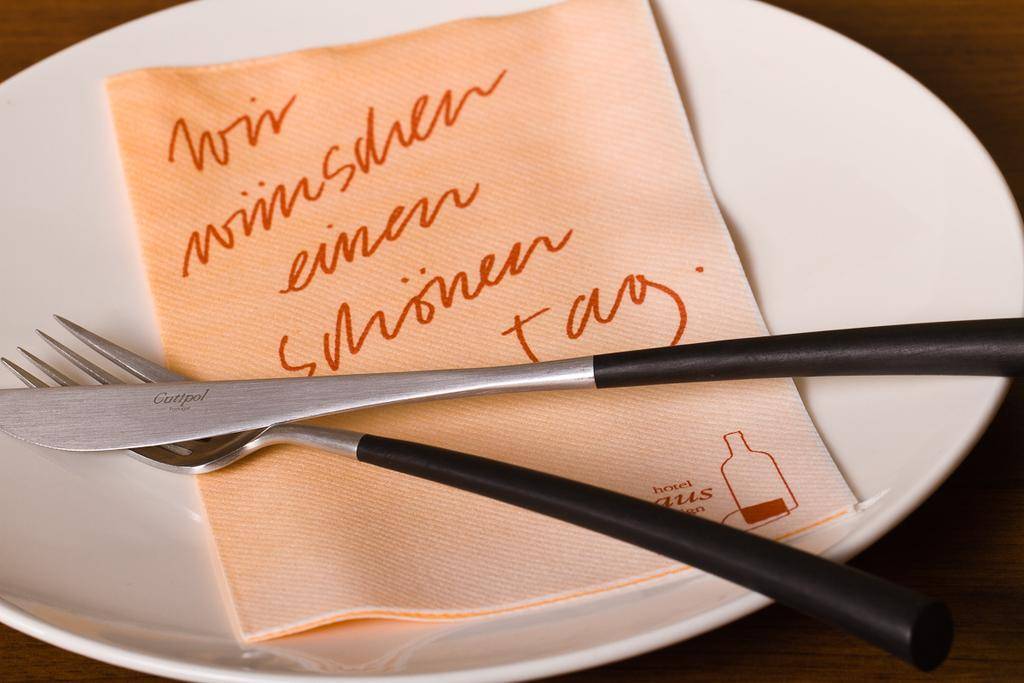 wir
wünschen
einen
schönen
tag.
Cutipol
Portugal
hotel